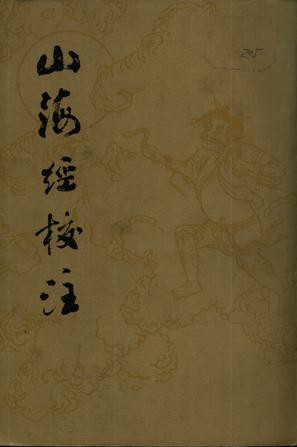 山海經校注
205